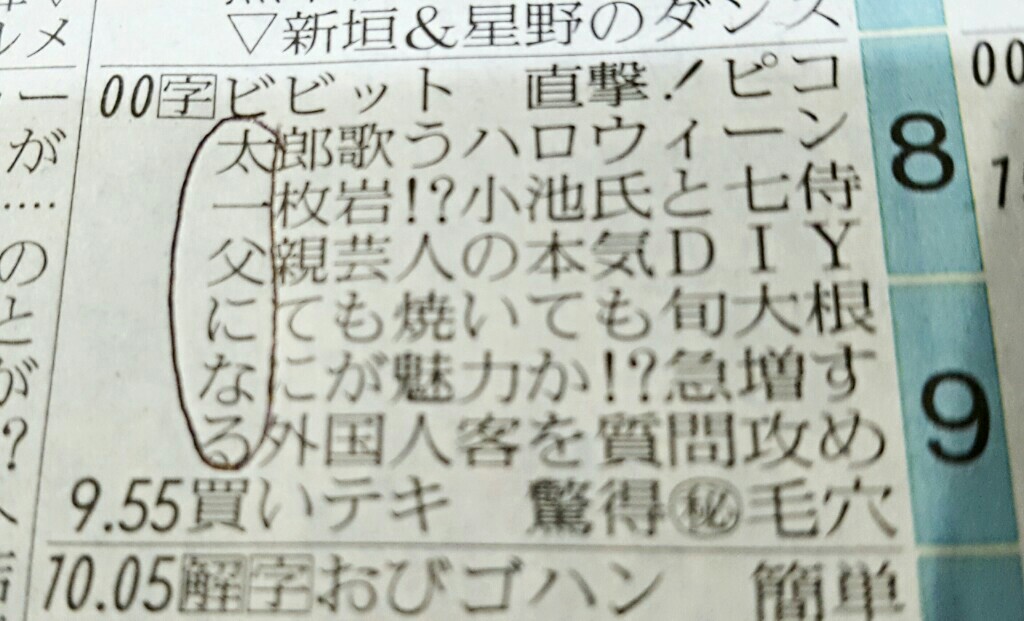 ▽新垣&星野のダンス
00字ビビット 直撃!ピコ
太郎歌うハロウィーン
一枚岩!?小池氏と七侍
父親芸人の本気DIY
にても焼いても旬大根
なにが魅力か!?急増す
る外国人客を質問攻め
9.55買いテキ 驚得㊙毛穴
10.05解字おびゴハン 簡単
8
9
ルメ
ー
が
……
の
と
が
?
00